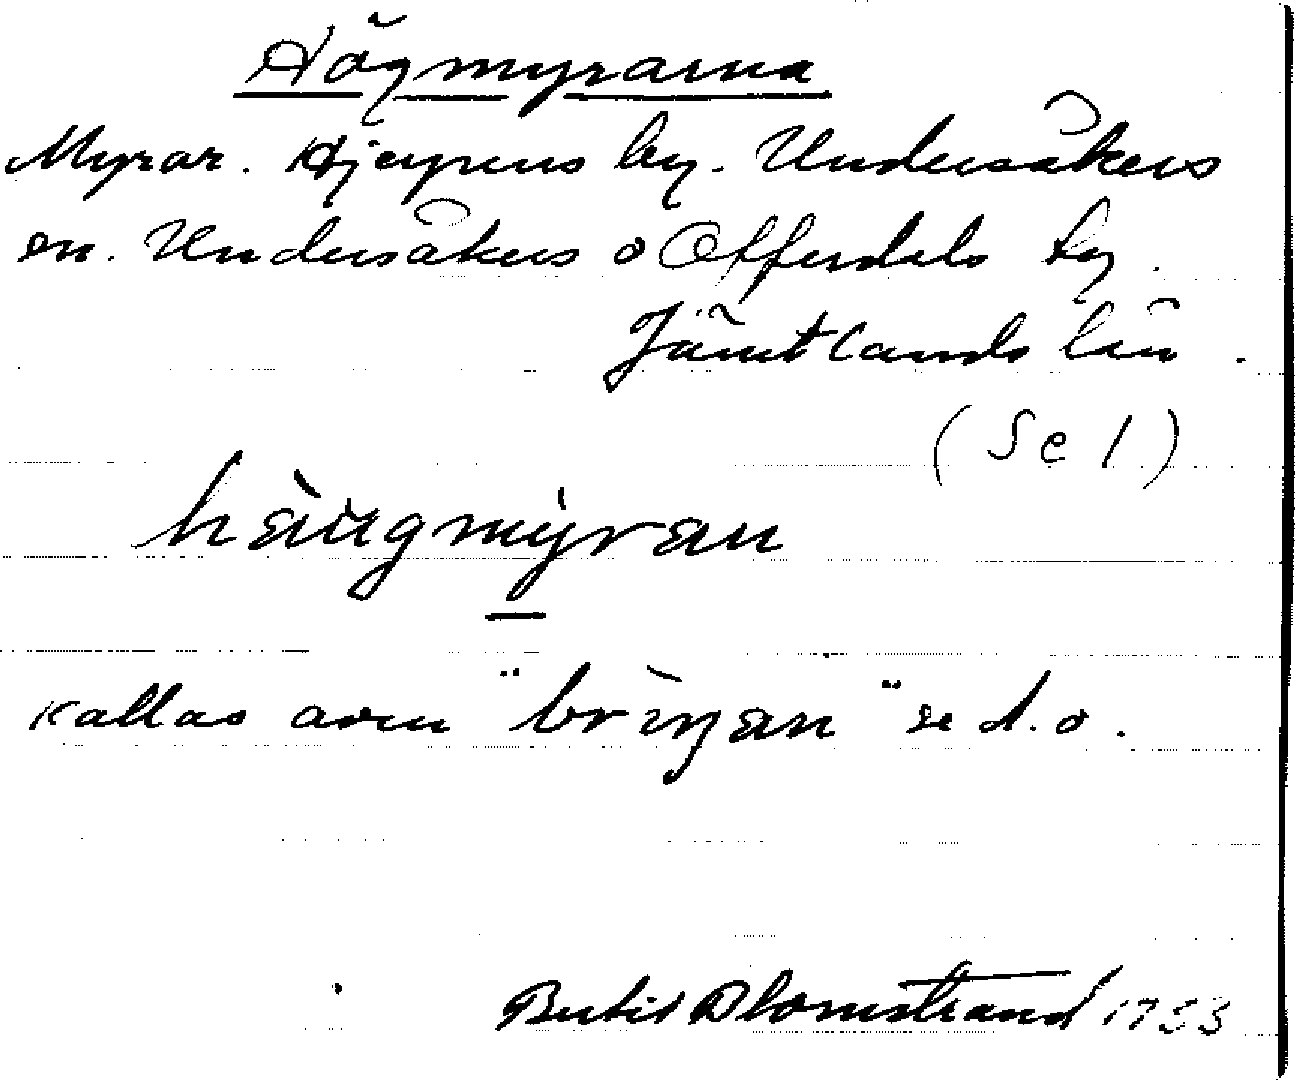 Högmyrarna
Myrar. Hjerpens by. Undersåkers
sn. Undersåkers o Offerdals tg.
Jämtlands län.
(Se 1)
hàu̇gmẏran
kallas även "brìnan" se d.o.
Bertil Blomstrand 1933